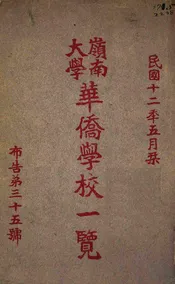 民國十二年五月栞
嶺南大學
華僑學校一覽
布告第三十五號